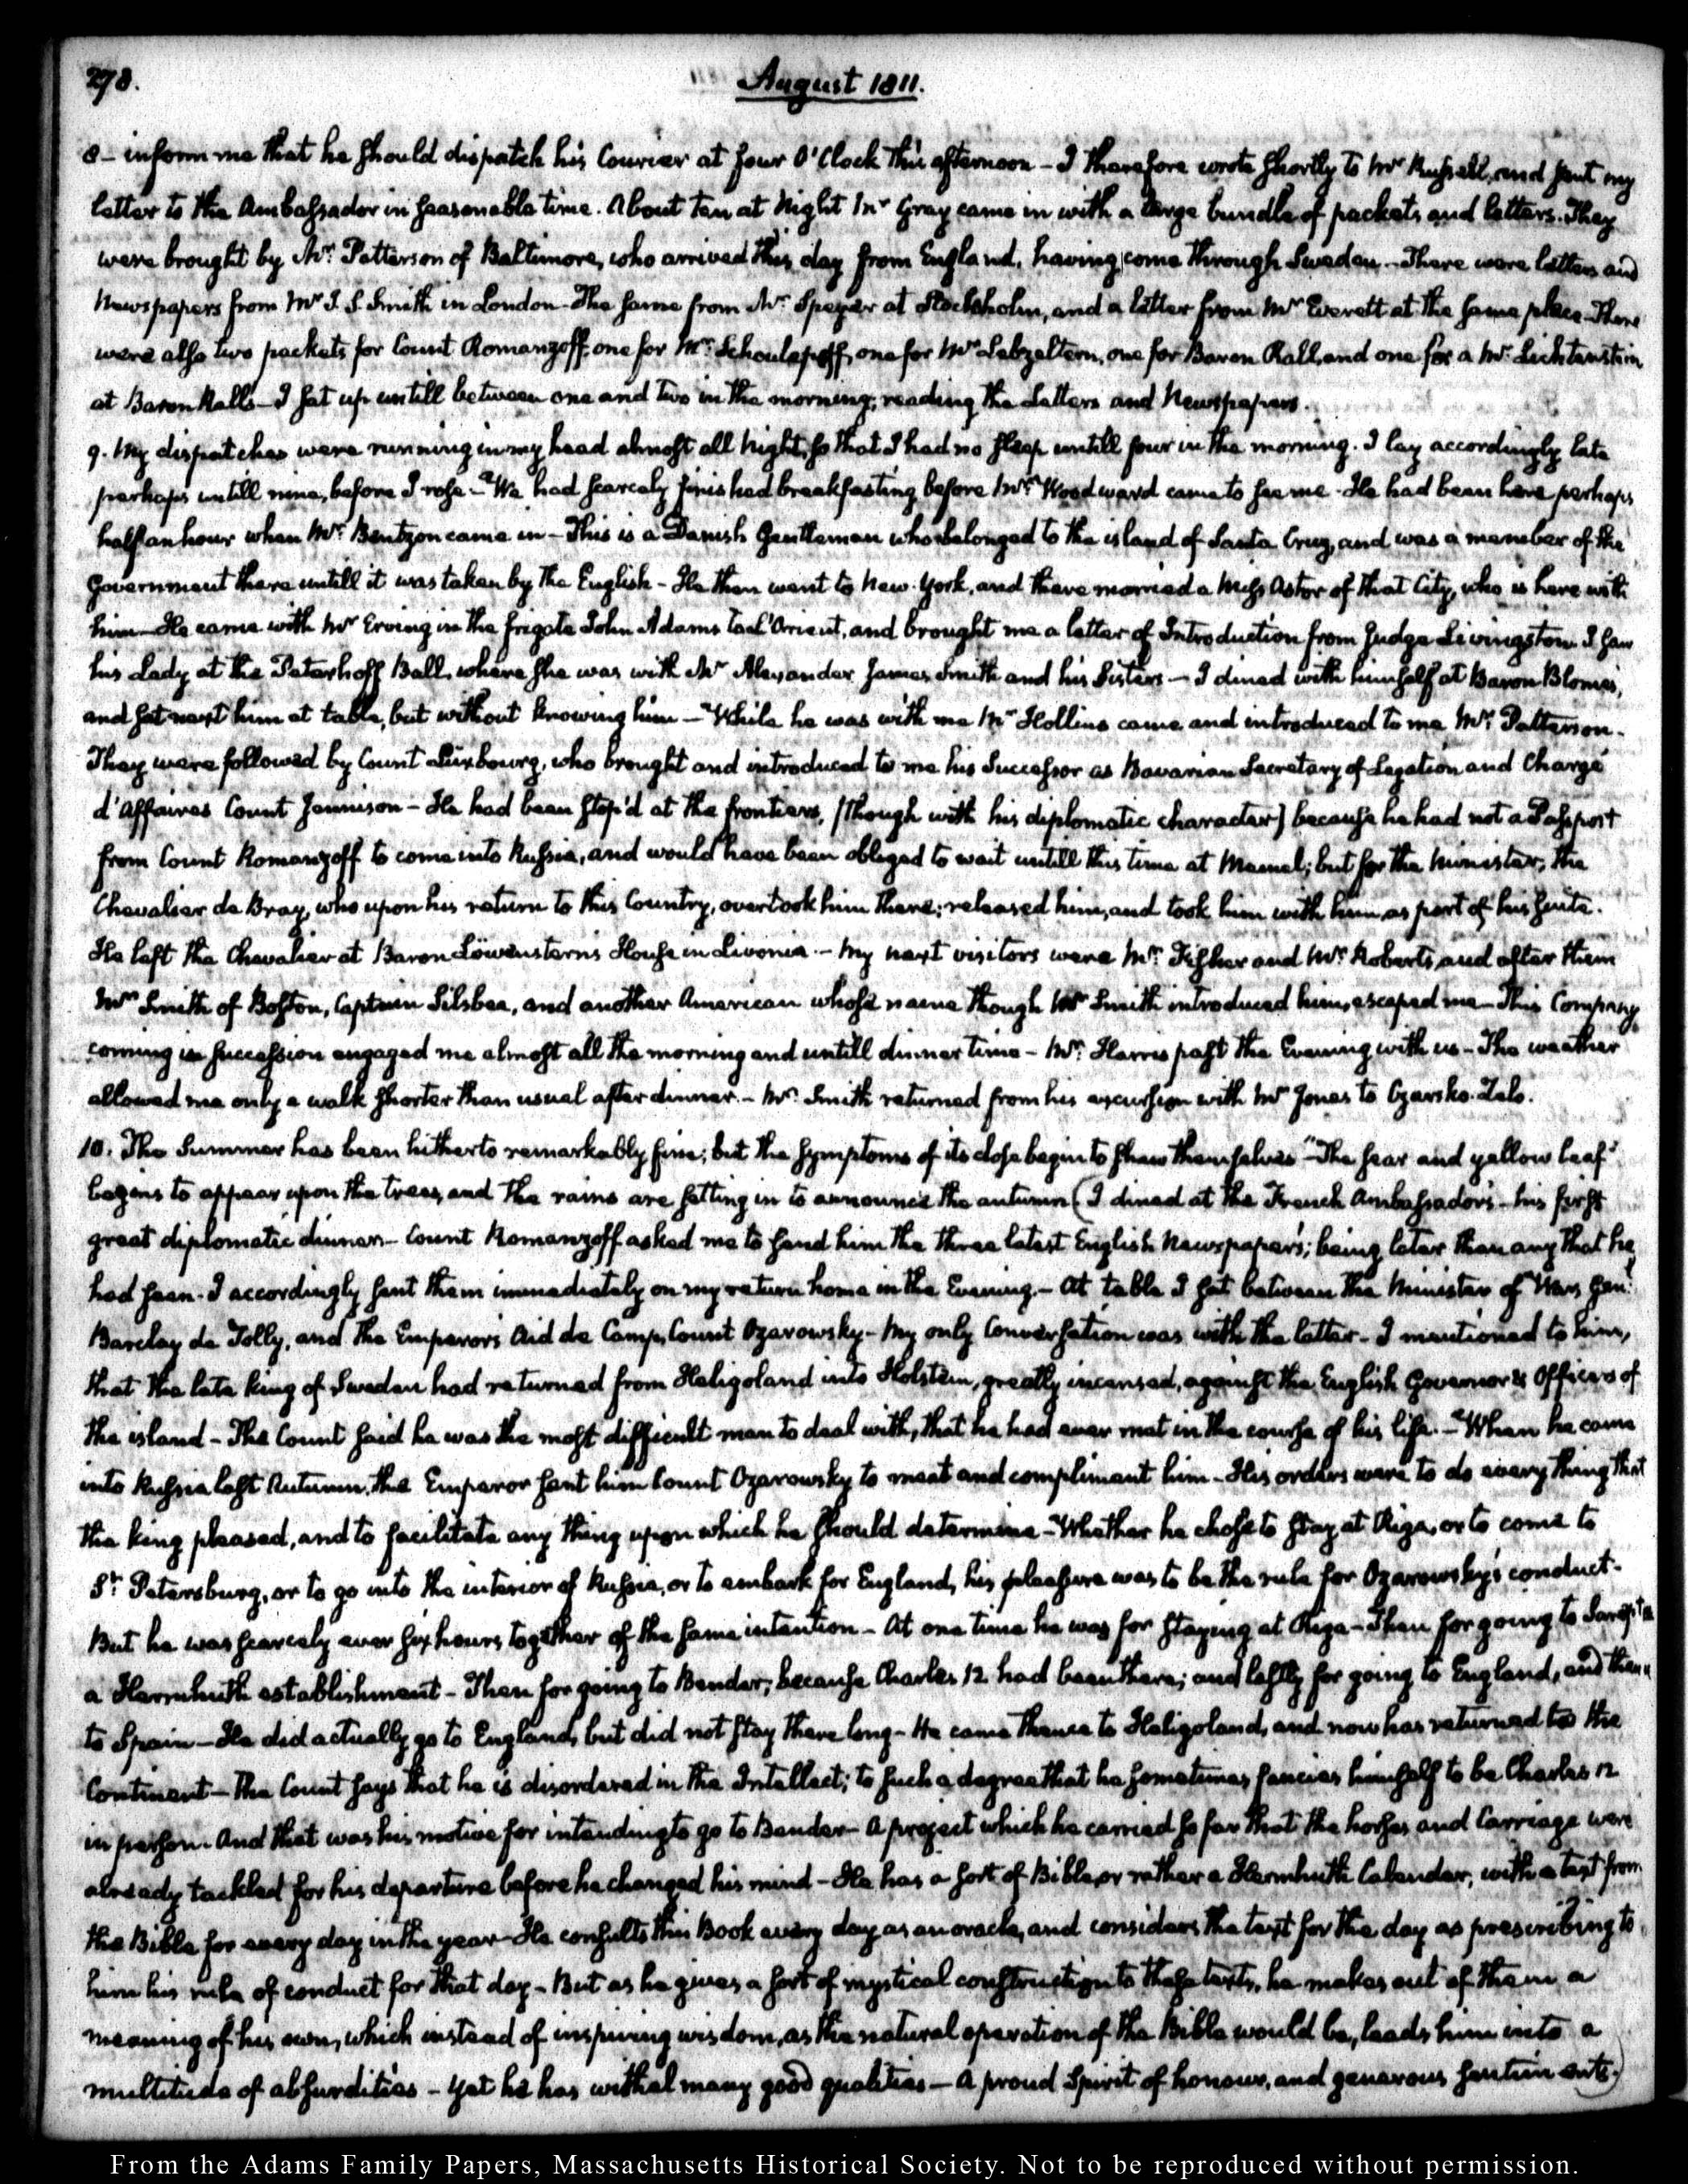 278.
August 1811.
8 – inform me that he should dispatch his Courier at four O'Clock this afternoon – I therefore wrote shortly to Mr Russell, and sent my
letter to the Ambassador in seasonable time. About ten at Night Mr Gray came in with a large bundle of packets and letters. They
were brought by Mr. Patterson of Baltimore, who arrived this day from England, having come through Sweden – There were letters and
Newspapers from Mr J. S. Smith in London – The same from Mr. Speyer at Stockholm, and a letter from Mr Everett at the same place – There
were also two packets for Count Romanzoff, one for Mr. Schoulepoff, one for Mr Lebzeltern, one for Baron Rall, and one for a Mr. Lichtenstein
at Baron Rall's – I sat up untill between one and two in the morning, reading the Letters and Newspapers.
9. My dispatches were running in my head almost all Night, so that I had no sleep untill four in the morning. I lay accordingly late
perhaps untill nine, before I rose – We had scarcely finished breakfasting before Mr. Woodward came to see me – He had been here perhaps
half an hour when Mr. Bentzon came in – This is a Danish Gentleman who belonged to the island of Santa Cruz, and was a member of the
Government there untill it was taken by the English – He then went to New-York, and there married a Miss Astor of that City, who is here with
him – He came with Mr Erving in the frigate John Adams to l'Orient, and brought me a letter of Introduction from Judge Livingston. I saw
his Lady at the Peterhoff Ball, where she was with Mr Alexander James Smith and his Sisters – I dined with himself at Baron Blome's,
and sat next him at table, but without knowing him – While he was with me Mr Hollins came and introduced to me Mr. Patterson.
They were followed by Count Luxbourg, who brought and introduced to me his Successor as Bavarian Secretary of Legation and Chargé
d'Affaires Count Jennison – He had been stop'd at the frontiers, (though with his diplomatic character) because he had not a Passport
from Count Romanzoff to come into Russia, and would have been obliged to wait untill this time at Memel; but for the Minister, the
Chevalier de Bray, who upon his return to this Country, overtook him there; released him, and took him with him as part of his suite.
He left the Chevalier at Baron Löwenstern's House in Livonia – My next visitors were Mr. Fisher and Mr. Roberts, and after them
Mr Smith of Boston, Captain Silsbee, and another American whose name though Mr Smith introduced him, escaped me – This Company
coming in succession engaged me almost all the morning and untill dinner time – Mr. Harris past the Evening with us – The weather
allowed me only a walk shorter than usual after dinner. – Mr. Smith returned from his excursion with Mr Jones to Czarsko-Zelo.
10. The Summer has been hitherto remarkably fine; but the symptoms of its close begin to shew themselves "The sear and yellow leaf"
begins to appear upon the trees, and the rains are setting in to announce the autumn (I dined at the French Ambassador's – his first
great diplomatic dinner – Count Romanzoff asked me to send him the three latest English Newspapers; being later than any that he
had seen – I accordingly sent them immediately on my return home in the Evening. – At table I sat between the Minister of War, Genl
Barclay de Tolly, and the Emperor's Aid de Camp, Count Ozarowsky – My only Conversation was with the latter – I mentioned to him,
that the late king of Sweden had returned from Heligoland into Holstein, greatly incensed, against the English Governor & Officers of
the island – The Count said he was the most difficult man to deal with, that he had ever met in the course of his life. – When he came
into Russia last Autumn, the Emperor sent him Count Ozarowsky to meet and compliment him – His orders were to do every thing that
the king pleased, and to facilitate any thing upon which he should determine – Whether he chose to stay at Riga, or to come to
St. Petersburg, or to go into the interior of Russia, or to embark for England, his pleasure was to be the rule for Ozarowsky's conduct –
But he was scarcely ever six hours together of the same intention – At one time he was for staying at Riga – Then for going to Sarepta
a Herrnhuth establishment – Then for going to Bender, because Charles 12 had been there; and lastly for going to England, and thence
to Spain – He did actually go to England, but did not stay there long – He came thence to Heligoland, and now has returned to the
Continent – The Count says that he is disordered in the Intellect; to such a degree that he sometimes fancies himself to be Charles 12
in person – And that was his motive for intending to go to Bender – A project which he carried so far that the horses and Carriage were
already tackled for his departure before he changed his mind – He has a sort of Bible, or rather a Herrnhuth Calendar, with a text from
the Bible for every day in the year – He consults this Book every day as an oracle, and considers the text for the day as prescribing to
him his rule of conduct for that day – But as he gives a sort of mystical construction to these texts, he makes out of them a
meaning of his own, which instead of inspiring wisdom, as the natural operation of the Bible would be, leads him into a
multitude of absurdities – Yet he has withal many good qualities – A proud Spirit of honour, and generous sentiments.)
From the Adams Family Papers, Massachusetts Historical Society. Not to be reproduced without permission.